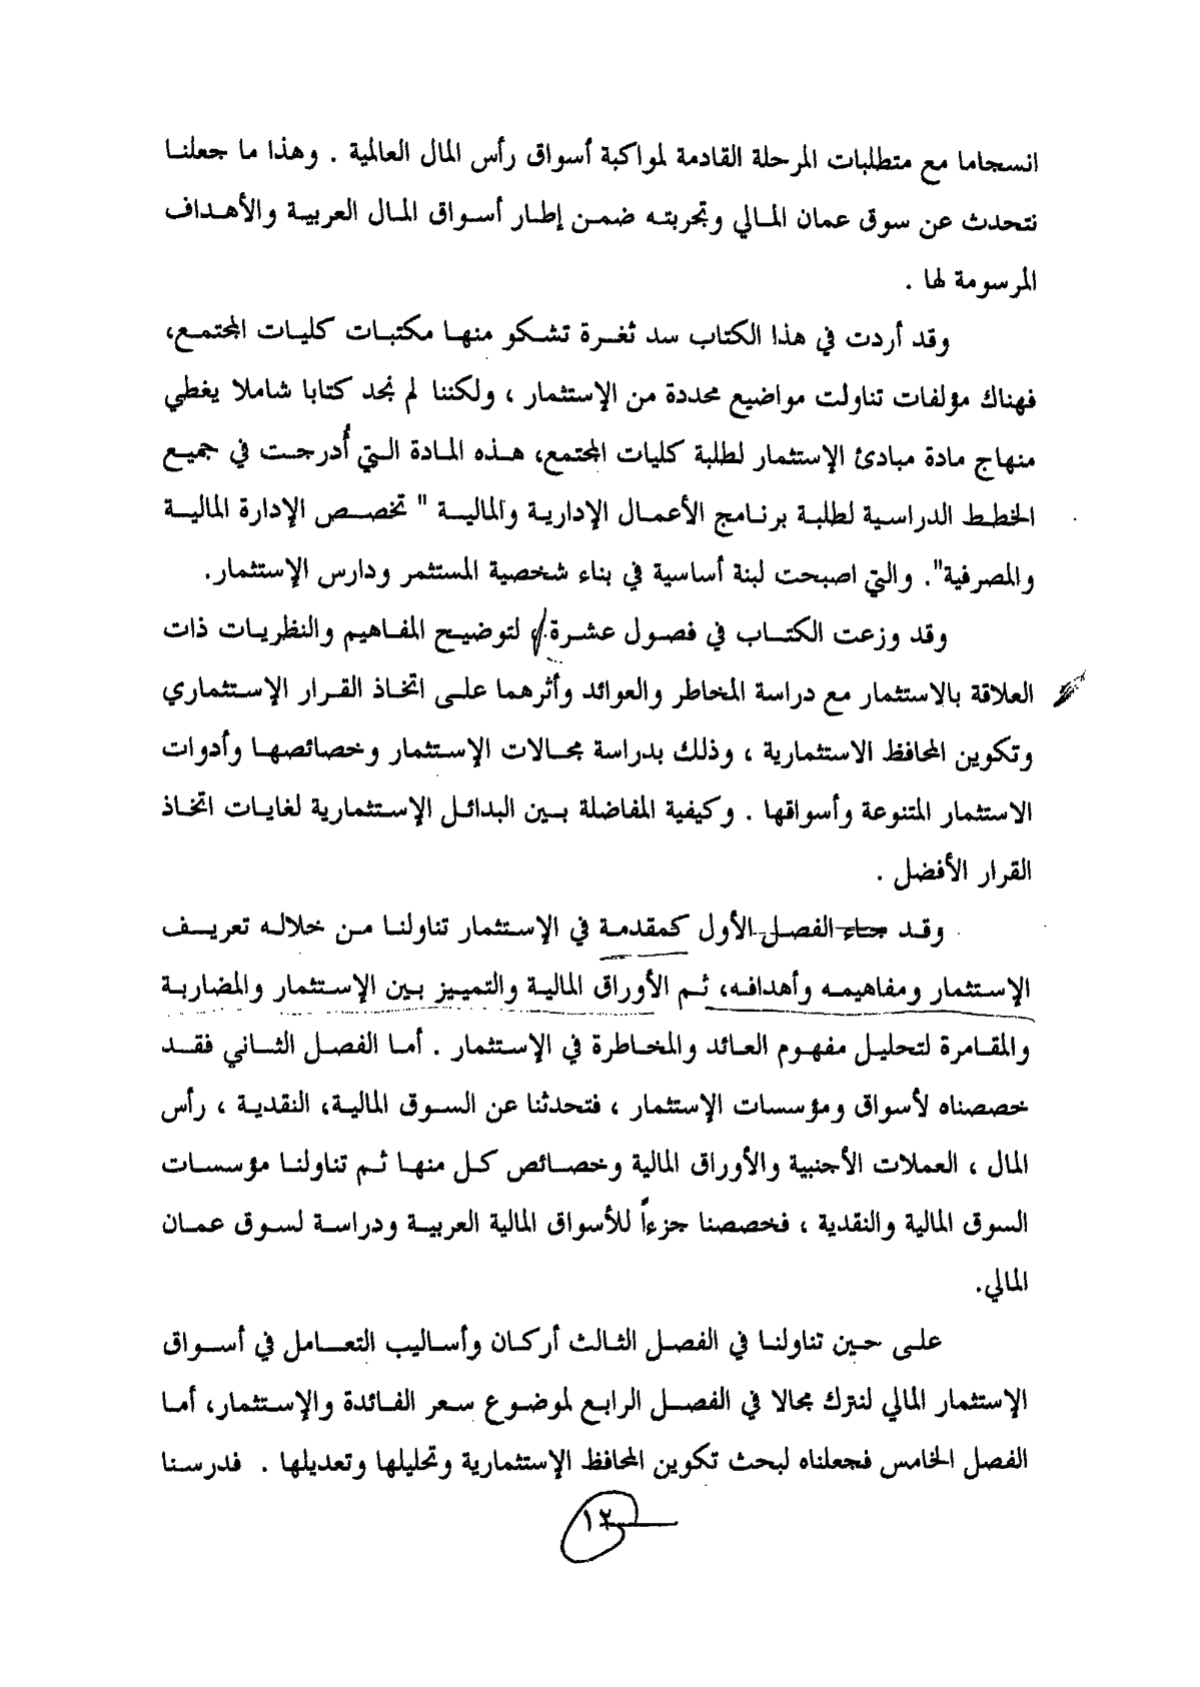 انسجاما مع متطلبات المرحلة القادمة لمواكبة أسواق رأس المال العالمية . وهذا ما جعلنا
نتحدث عن سوق عمان المالي وتجربته ضمن إطار أسواق المال العربية والأهداف
المرسومة لها .
وقد أردت في هذا الكتاب سد ثغرة تشكو منها مكتبات كليات المجتمع،
فهناك مؤلفات تناولت مواضيع محددة من الإستثمار ، ولكننا لم نجد كتابا شاملا يغطي
منهاج مادة مبادئ الإستثمار لطلبة كليات المجتمع، هذه المادة التي أُدرجت في جميع
الخطط الدراسية لطلبة برنامج الأعمال الإدارية والمالية " تخصص الإدارة المالية
والمصرفية". والتي اصبحت لبنة أساسية في بناء شخصية المستثمر ودارس الإستثمار.
وقد وزعت الكتاب في فصول عشرة، لتوضيح المفاهيم والنظريات ذات
العلاقة بالاستثمار مع دراسة المخاطر والعوائد وأثرهما على اتخاذ القرار الإستثماري
وتكوين المحافظ الاستثمارية ، وذلك بدراسة مجالات الإستثمار وخصائصها وأدوات
الاستثمار المتنوعة وأسواقها . وكيفية المفاضلة بين البدائل الإستثمارية لغايات اتخاذ
القرار الأفضل .
وقد جاء الفصل الأول كمقدمة في الإستثمار تناولنا من خلاله تعريف
الإستثمار ومفاهيمه وأهدافه، ثم الأوراق المالية والتمييز بين الإستثمار والمضاربة
والمقامرة لتحليل مفهوم العائد والمخاطرة في الإستثمار . أما الفصل الثاني فقد
خصصناه لأسواق ومؤسسات الإستثمار ، فتحدثنا عن السوق المالية، النقدية ، رأس
المال ، العملات الأجنبية والأوراق المالية وخصائص كل منها ثم تناولنا مؤسسات
السوق المالية والنقدية ، فخصصنا جزءاً للأسواق المالية العربية ودراسة لسوق عمان
المالي.
على حين تناولنا في الفصل الثالث أركان وأساليب التعامل في أسواق
الإستثمار المالي لنترك مجالا في الفصل الرابع لموضوع سعر الفائدة والإستثمار، أما
الفصل الخامس فجعلناه لبحث تكوين المحافظ الإستثمارية وتحليلها وتعديلها . فدرسنا
١٢